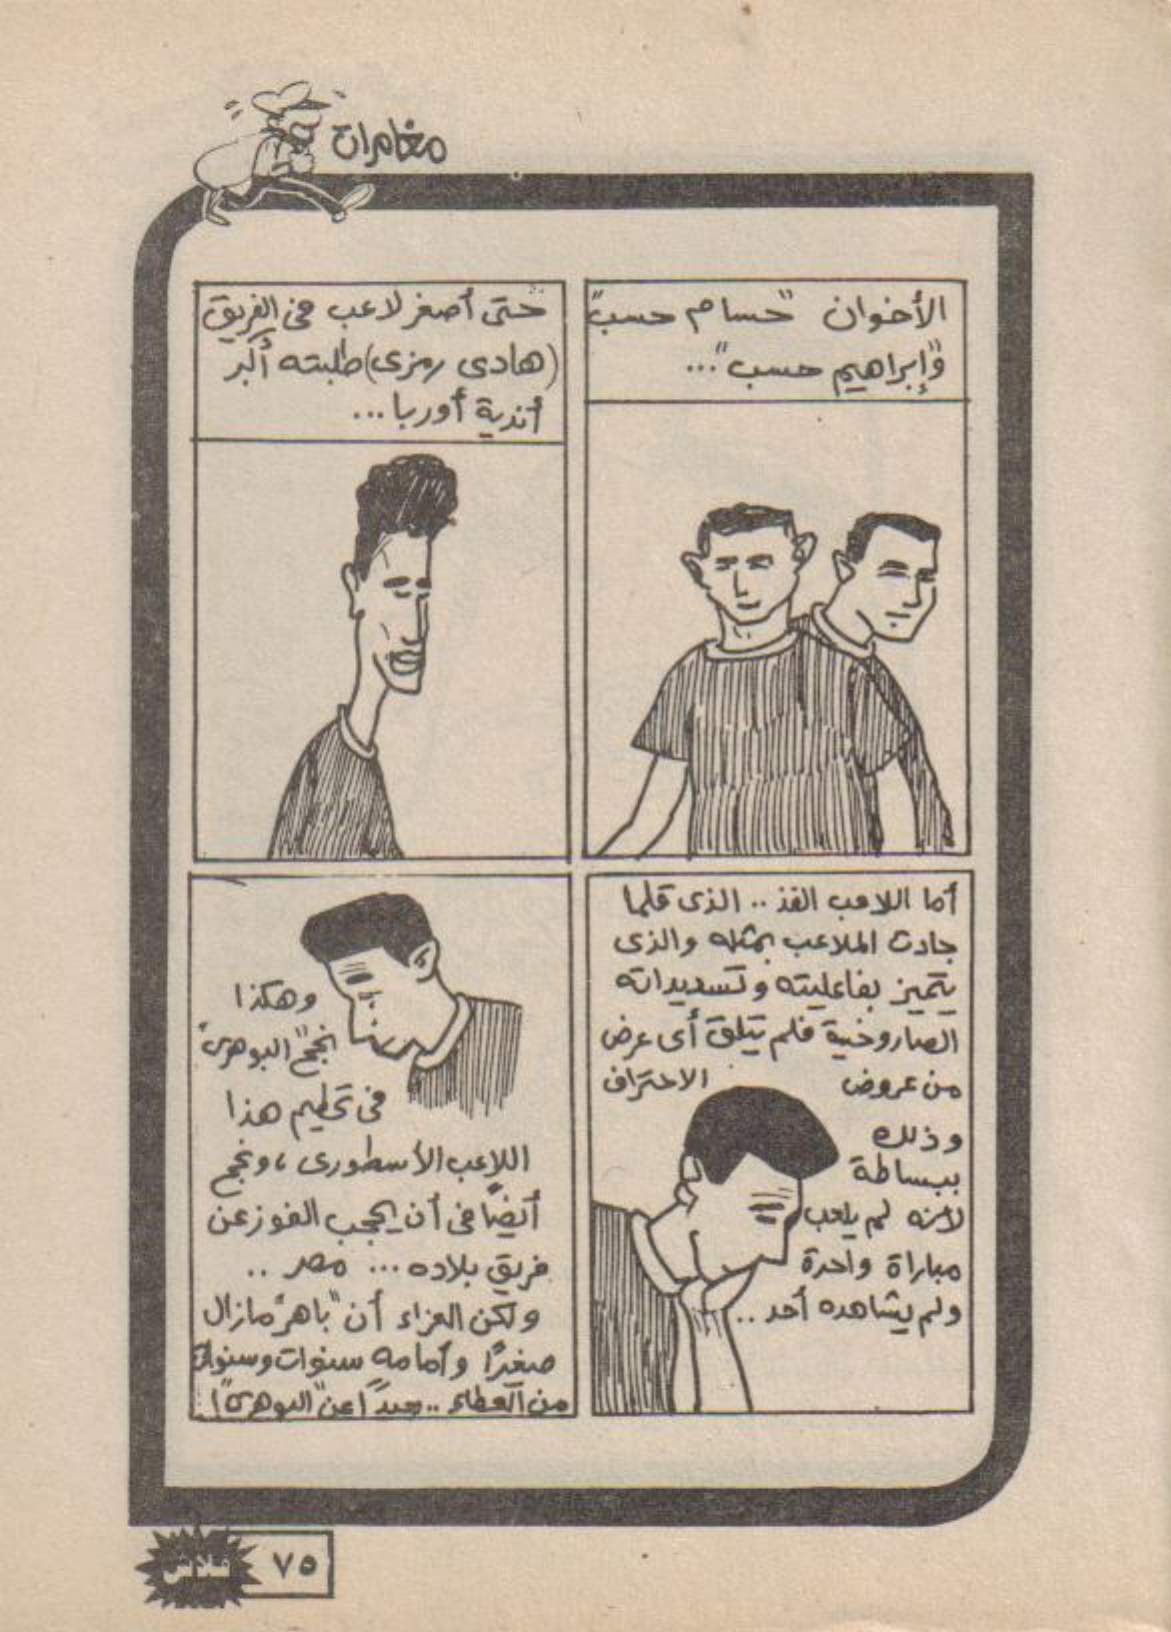 مغامرات
الأخوان "حسام حسن"
و"إبراهيم حسن"...
حتى أصغر لاعب فى الفريق
(هادى رمزى) طلبته أكبر
أندية أوربا...
أما اللاعب الفذ .. الذى قلما
جادت الملاعب بمثله والذى
يتميز بفاعليته وتسديداته
الصاروخية فلم يتلق أى عرض
من عروض الاحتراف
وذلك
ببساطة
لأنه لم يلعب
مباراة واحدة
ولم يشاهده أحد ..
وهكذا
نجح "الجوهرى"
فى تحطيم هذا
اللاعب الأسطورى، ونجح
أيضًا فى أن يحجب الفوز عن
فريق بلاده ... مصر ..
ولكن العزاء أن "باهر" مازال
صغيرًا وأمامه سنوات وسنوات
من العطاء .. بعيدًا عن "الجوهرى"!
فلاش
٧٥